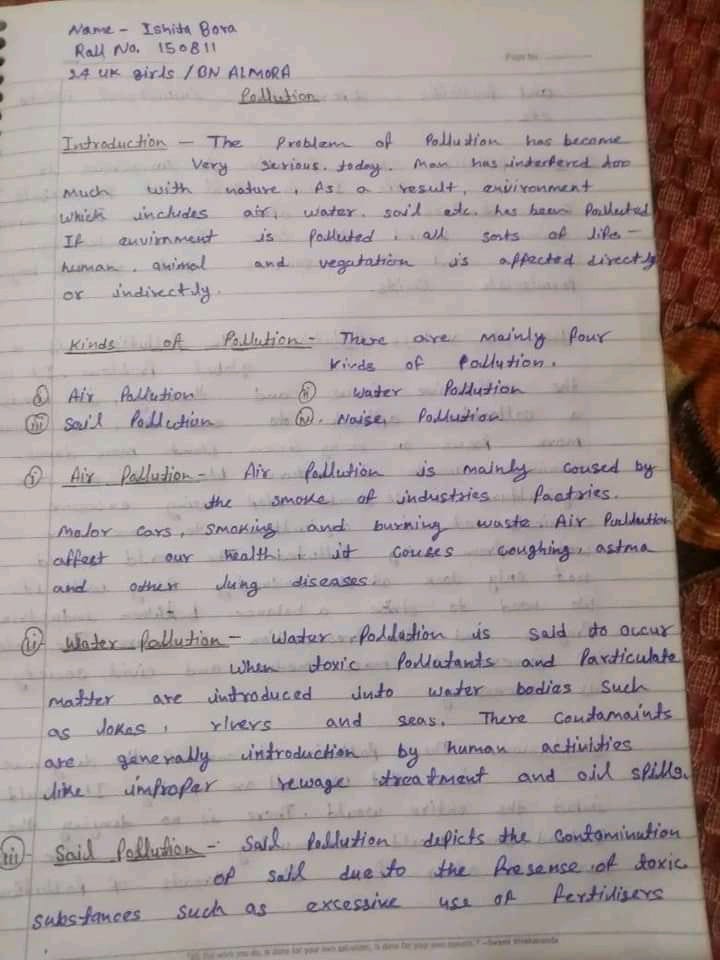 Name - Ishita Bora
Roll No. 150811
24 UK girls / BN ALMORA
Pollution
Page No.
Introduction - The Problem of Pollution has become
Very serious. today. Man has interfered too
much with nature, As a result, enviironment
which includes air, water. soil etc. has been Polluted
If envirnment is Polluted, all sorts of life -
human. animal and vegatation is affected directly
or indirectly.
Kinds of Pollution - There are mainly four
kinds of Pollution.
(i) Air Pollution (ii) Water Pollution
(iii) Soil Pollution (iv). Noise, Pollution
(i) Air Pollution - Air Pollution is mainly coused by
the smoke of industries factries.
Motor cars, smoking and burning waste. Air Pollution
affect our health. it couses coughing, astma
and other lung diseases
(ii) Water Pollution - Water Pollution is said to occur
When toxic Pollutants and Particulate
matter are introduced into water bodies such
as lakes, rivers and seas. There contamaints
are generally introduction by human activities
like improper sewage treatment and oil spills.
(iii) Soil Pollution - Soil Pollution depicts the contamination
of soil due to the Presence of toxic
substances such as excessive use of fertilisers
"All the work you do, is done for your own salvation, is done for your own benefit." -Swami Vivekananda